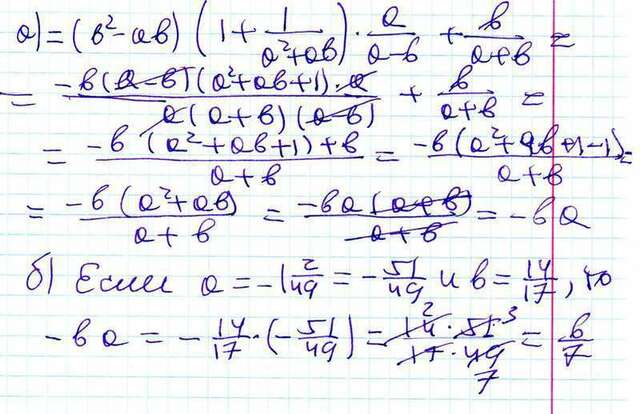 а) = (b² - ab) (1 + 1/(a² + ab)) · a/(a - b) + b/(a + b) =
= (-b(a - b)(a² + ab + 1) · a)/(a(a + b)(a - b)) + b/(a + b) =
= (-b(a² + ab + 1) + b)/(a + b) = (-b(a² + ab + 1 - 1))/(a + b) =
= (-b(a² + ab))/(a + b) = (-ba(a + b))/(a + b) = -ba
б) Если a = -1 2/49 = -51/49 и b = 14/17, то
-ba = -14/17 · (-51/49) = (14 2 · 51 3)/(17 · 49 7) = 6/7